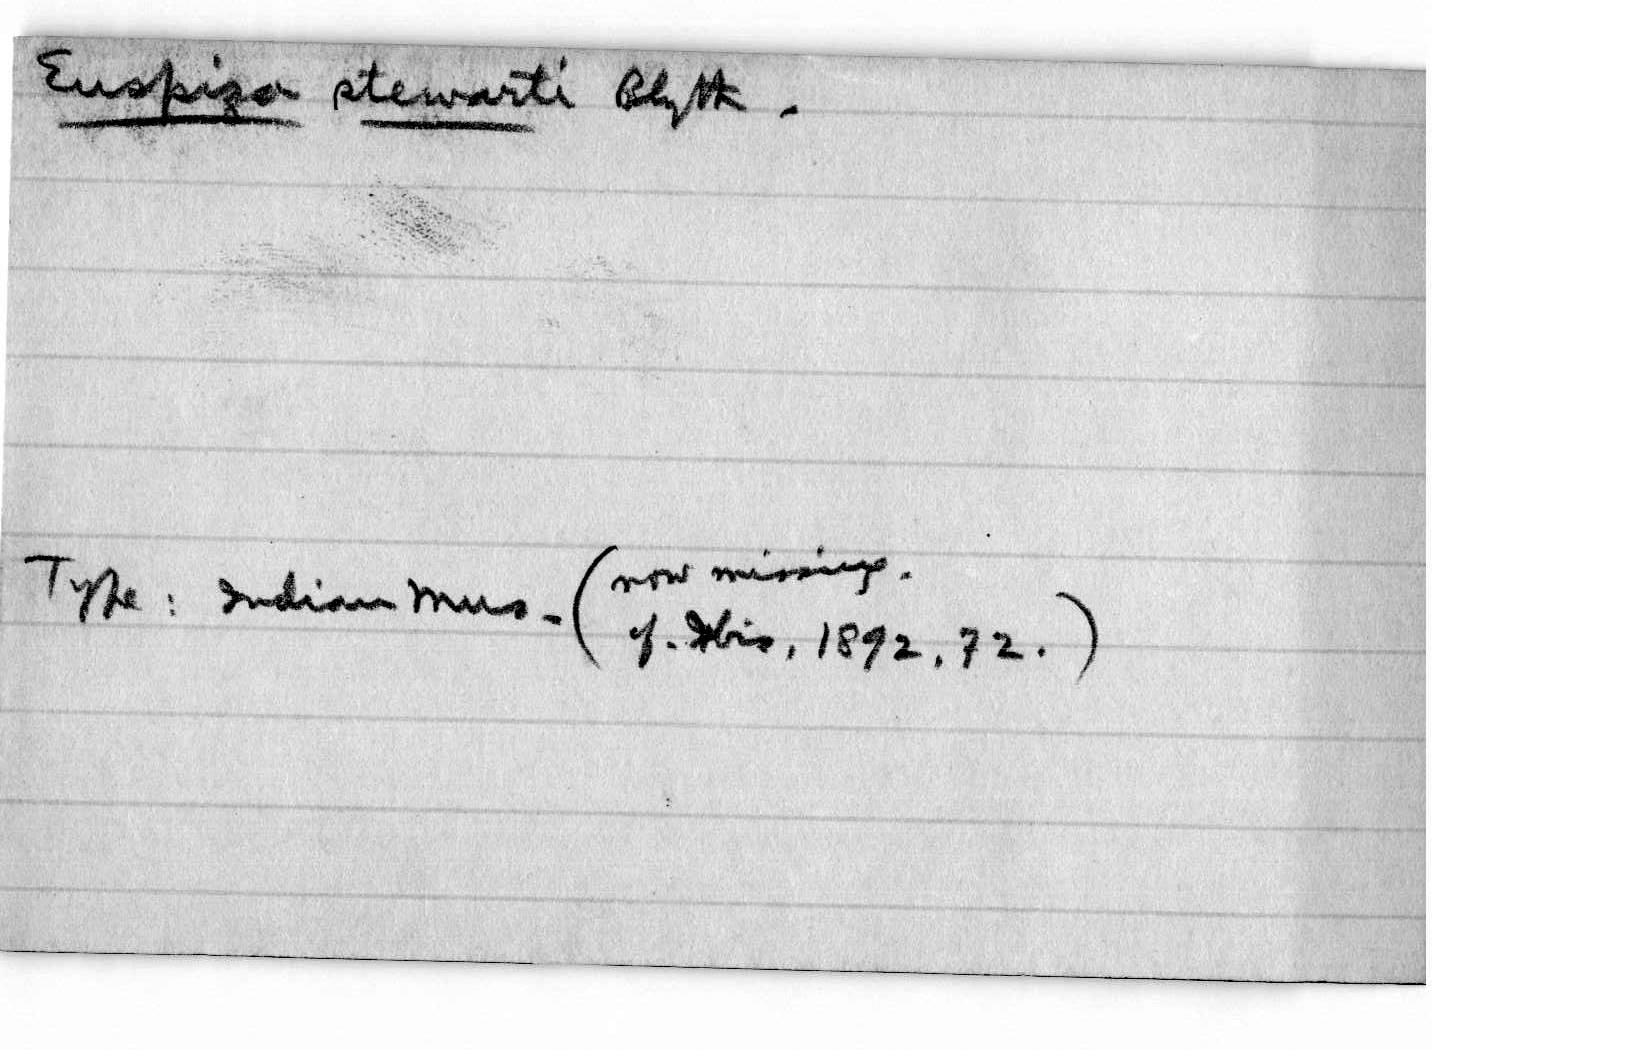 Euspiza stewarti Blyth.
Type: Indian Mus. (now missing.
cf. Ibis, 1892, 72.)